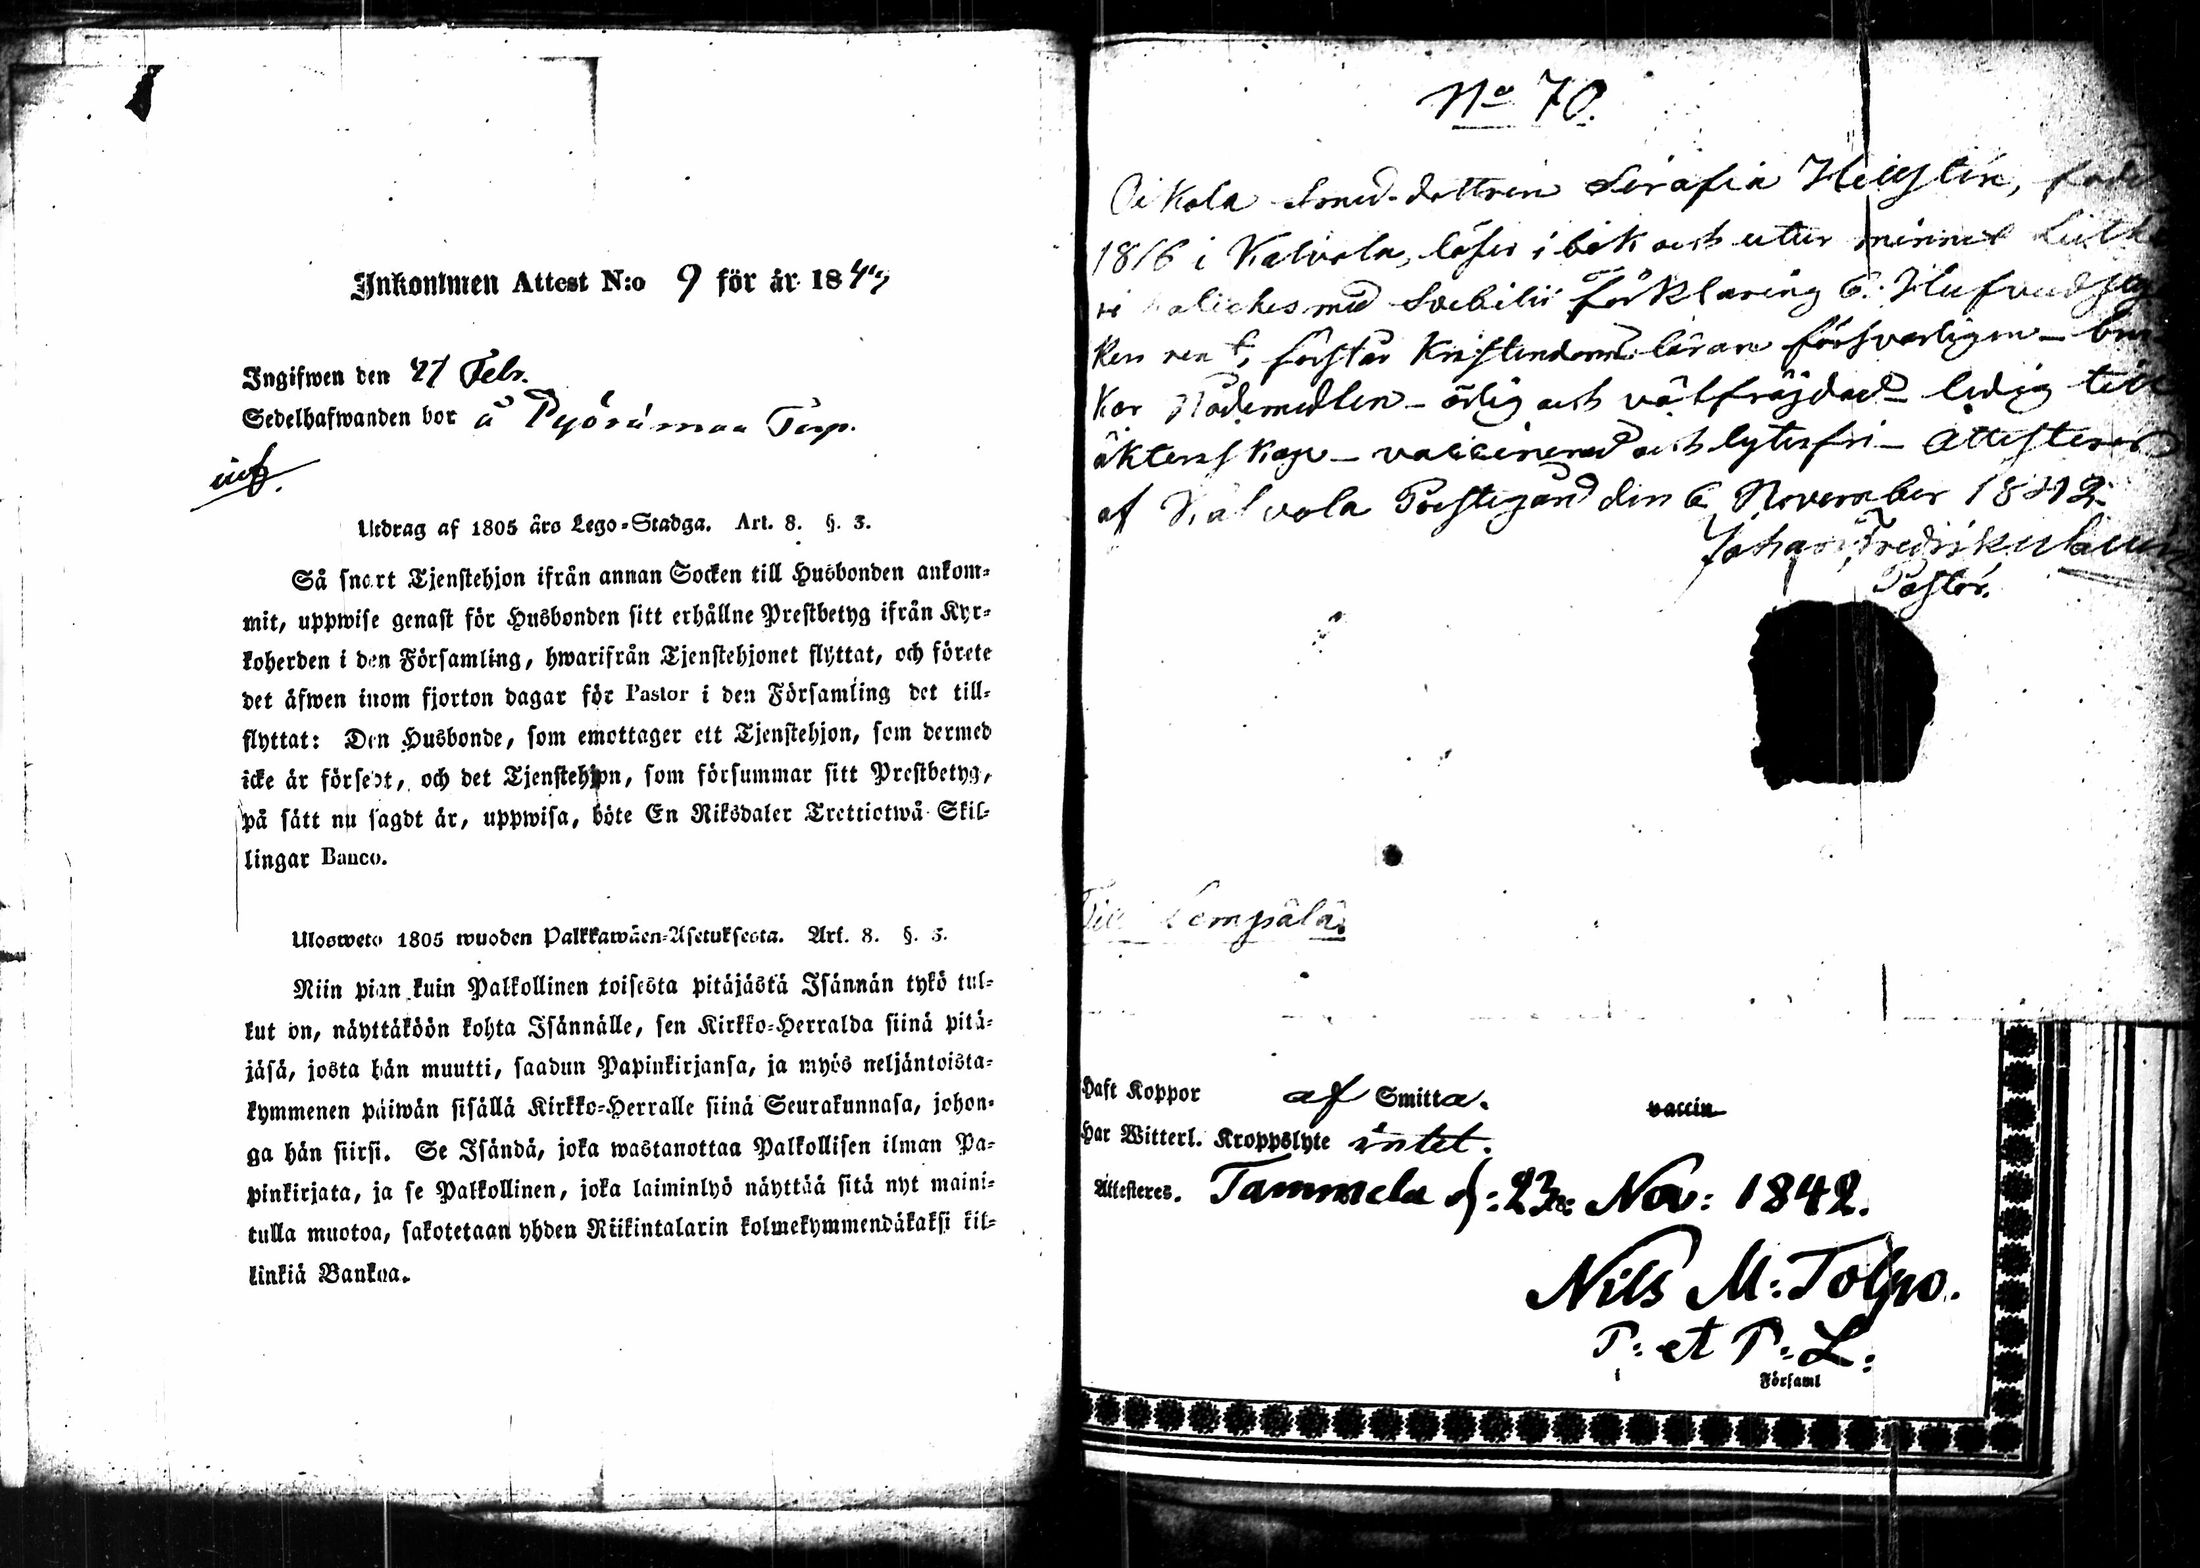 Inkommen Attest N:o 9 för år 1843
Ingifwen den 27 Febr.
Sedelhafwanden bor å Pyörämaa Torp.
inf.
Utdrag af 1805 års Lego-Stadga. Art. 8. §. 3.
Så snart Tjenstehjon ifrån annan Socken till Husbonden ankom-
mit, uppwise genast för Husbonden sitt erhållne Prestbetyg ifrån Kyr-
koherden i den Församling, hwarifrån Tjenstehjonet flyttat, och förete
det äfwen inom fjorton dagar för Pastor i den Församling det till-
flyttat: Den Husbonde, som emottager ett Tjenstehjon, som dermed
icke är försedt, och det Tjenstehjon, som försummar sitt Prestbetyg,
på sätt nu sagdt är, uppwisa, böte En Riksdaler Trettiotwå Skil-
lingar Banco.
Ulosweto 1805 wuoden Palkkawäen-Asetuksesta. Art. 8. §. 3.
Niin pian kuin Palkollinen toisesta pitäjästä Isännän tykö tul-
kut on, näyttäköön kohta Isännälle, sen Kirkko-Herralda siinä pitä-
jäsä, josta hän muutti, saadun Papinkirjansa, ja myös neljäntoista-
kymmenen päiwän sisällä Kirkko-Herralle siinä Seurakunnasa, johon-
ga hän siirsi. Se Isändä, joka wastanottaa Palkollisen ilman Pa-
pinkirjata, ja se Palkollinen, joka laiminlyö näyttää sitä nyt maini-
tulla muotoa, sakotetaan yhden Riikintalarin kolmekymmendäkaksi kil-
linkiä Bankoa.
No 70.
Oikola Smed-dottren Serafia Hellsten, född
1816 i Kalvola, läser i bok och utur minnet Luthe
ri med Svebilii Förklaring 6. Hufvudstyc
ken rent, förstår Kristendoms läran försvarligen - bru
kar Nådemedlen - ärlig och välfräjdad - ledig till
äktenskap - vaccinerad och lytesfri - Attesteras
af Kalvola Prestegård den 6 November 1842.
Johan Fredrik
Pastor.
Till Lempälä.
Haft Koppor af Smitta. vaccin
Har Witterl. Kroppslyte intet.
Attesteres. Tammela d: 23: Nov: 1842.
Nils M: Tolpo.
P: et P: L:
i Församl